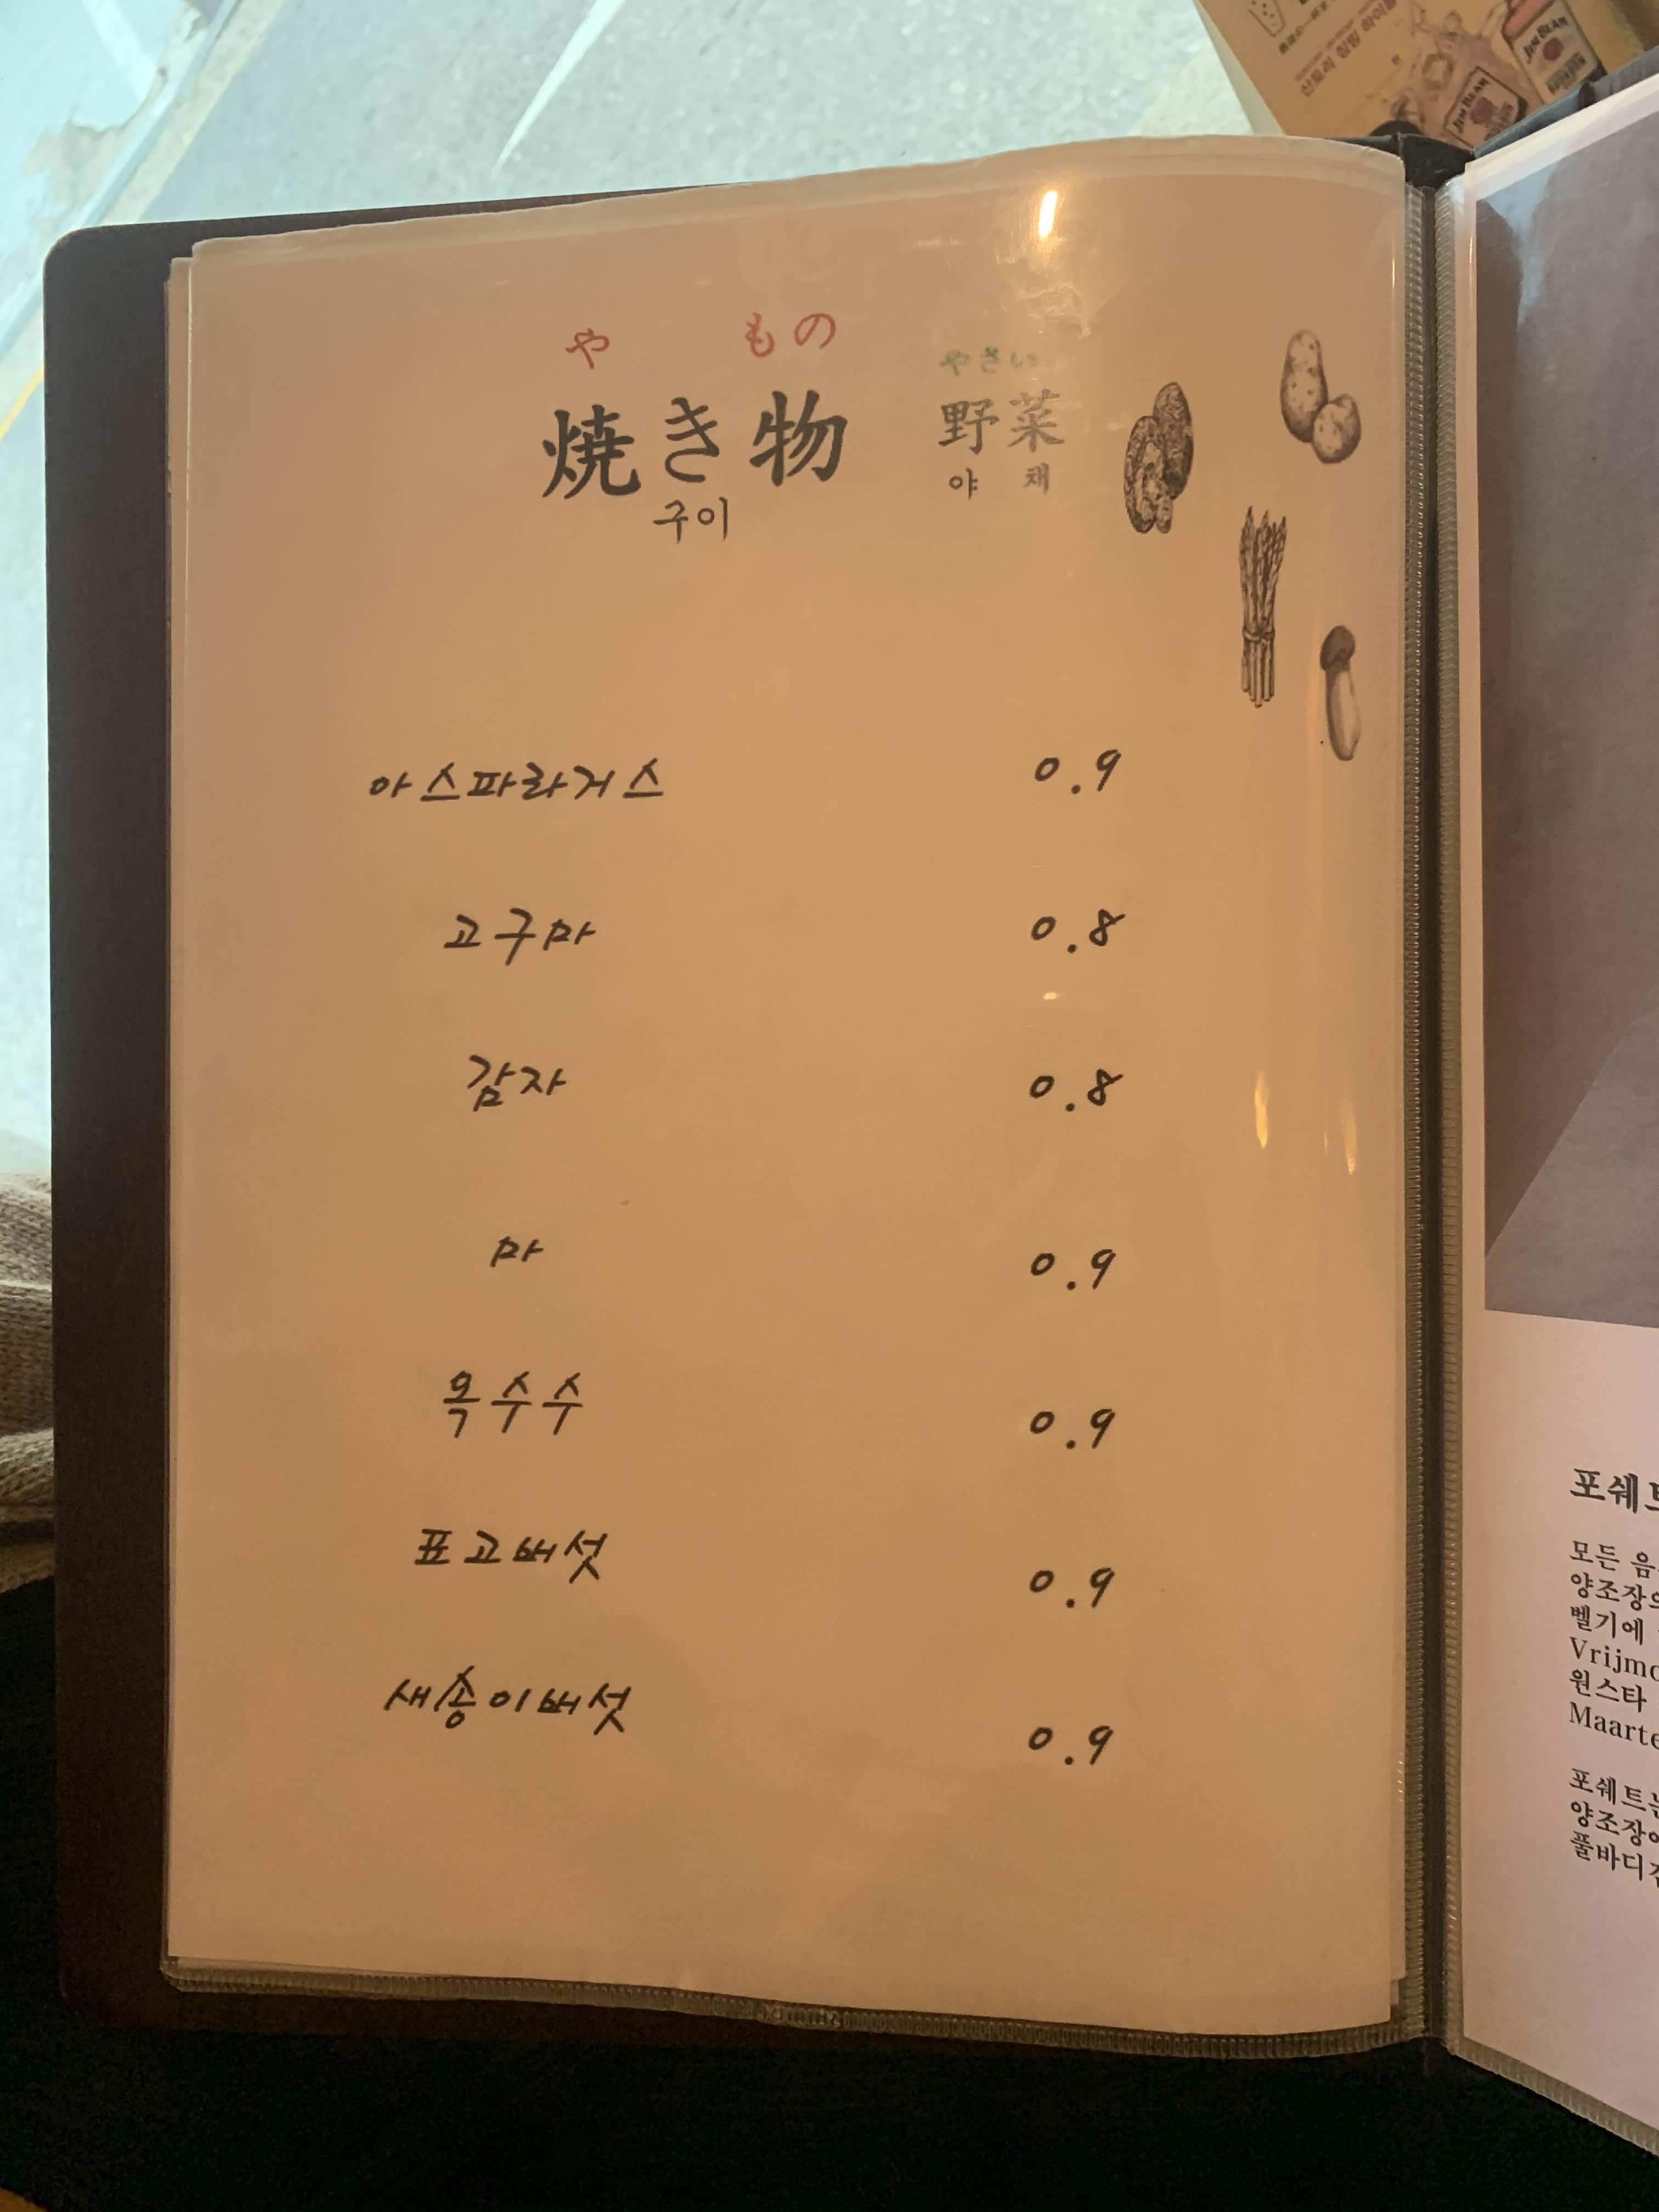 산토리 짐빔 하이볼
JIM BEAM
JIM BEAM
や もの
焼き物
구이
やさい
野菜
야 채
아스파라거스 0.9
고구마 0.8
감자 0.8
마 0.9
옥수수 0.9
표고버섯 0.9
새송이버섯 0.9
포쉐트
모든 음
양조장의
벨기에
Vrijmo
원스타
Maarte
포쉐트는
양조장에
풀바디감